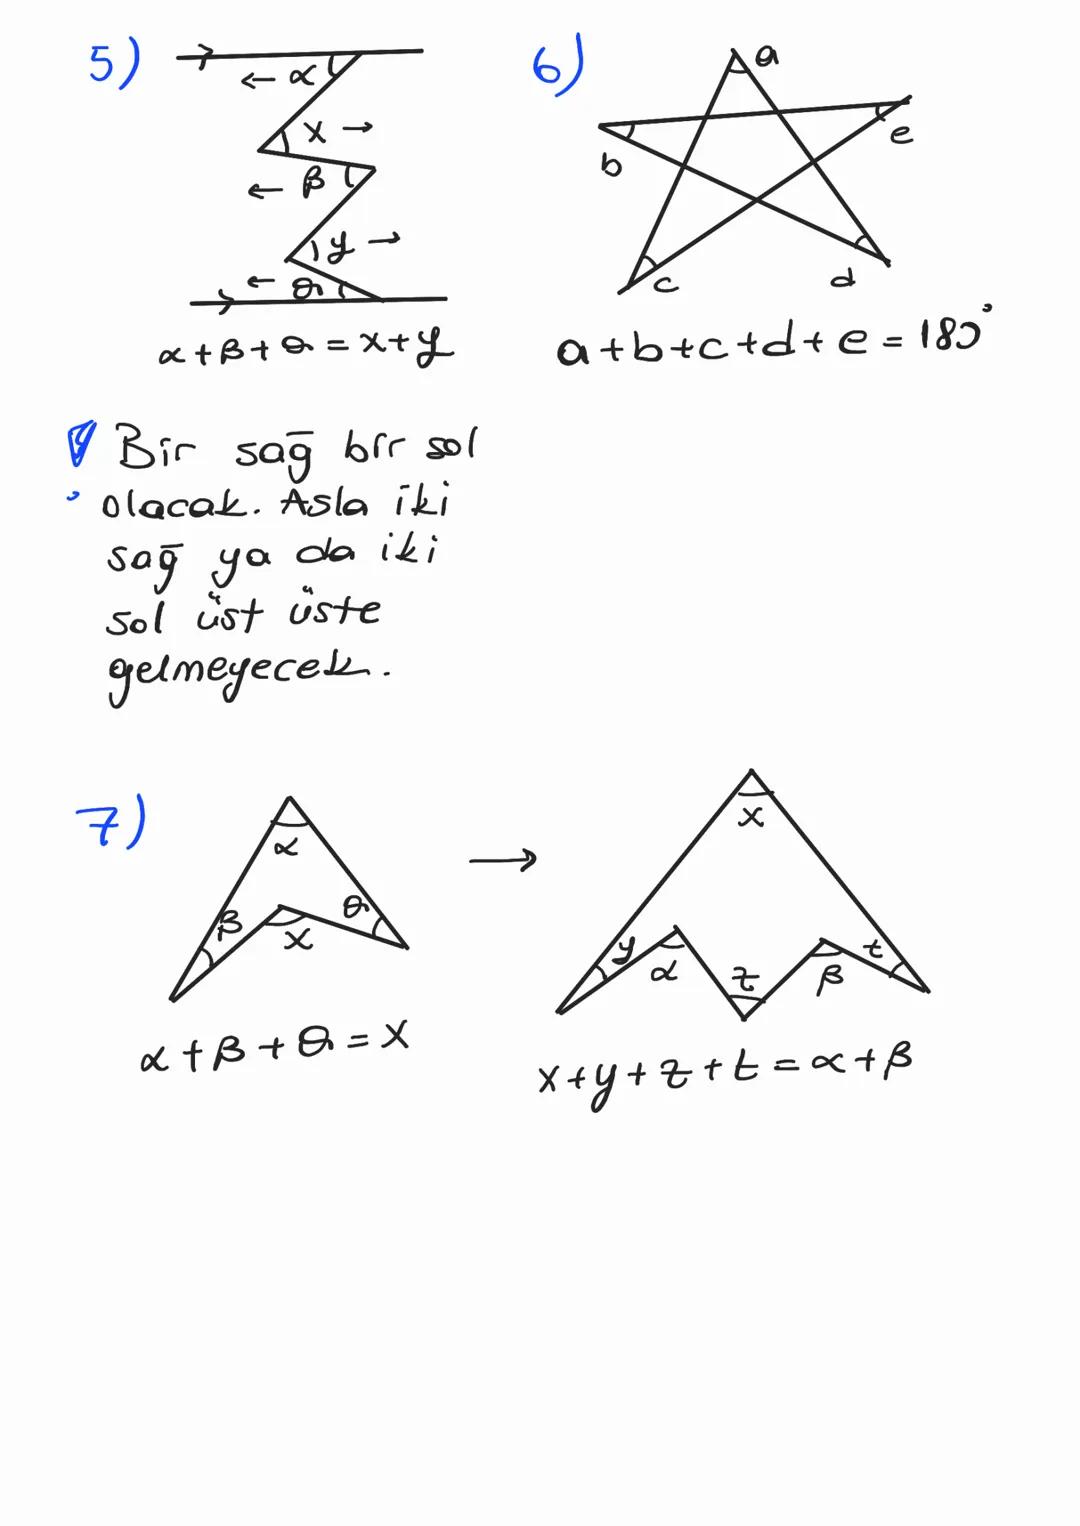 5)
← α
x →
← β
y →
← θ
α+β+θ=x+y
6)
a
b
e
c
d
a+b+c+d+e=180°
! Bir sağ bir sol
olacak. Asla iki
sağ ya da iki
sol üst üste
gelmeyecek.
7)
α
β
θ
x
→
x
y
α
z
β
t
α+β+θ=x
x+y+z+t=α+β